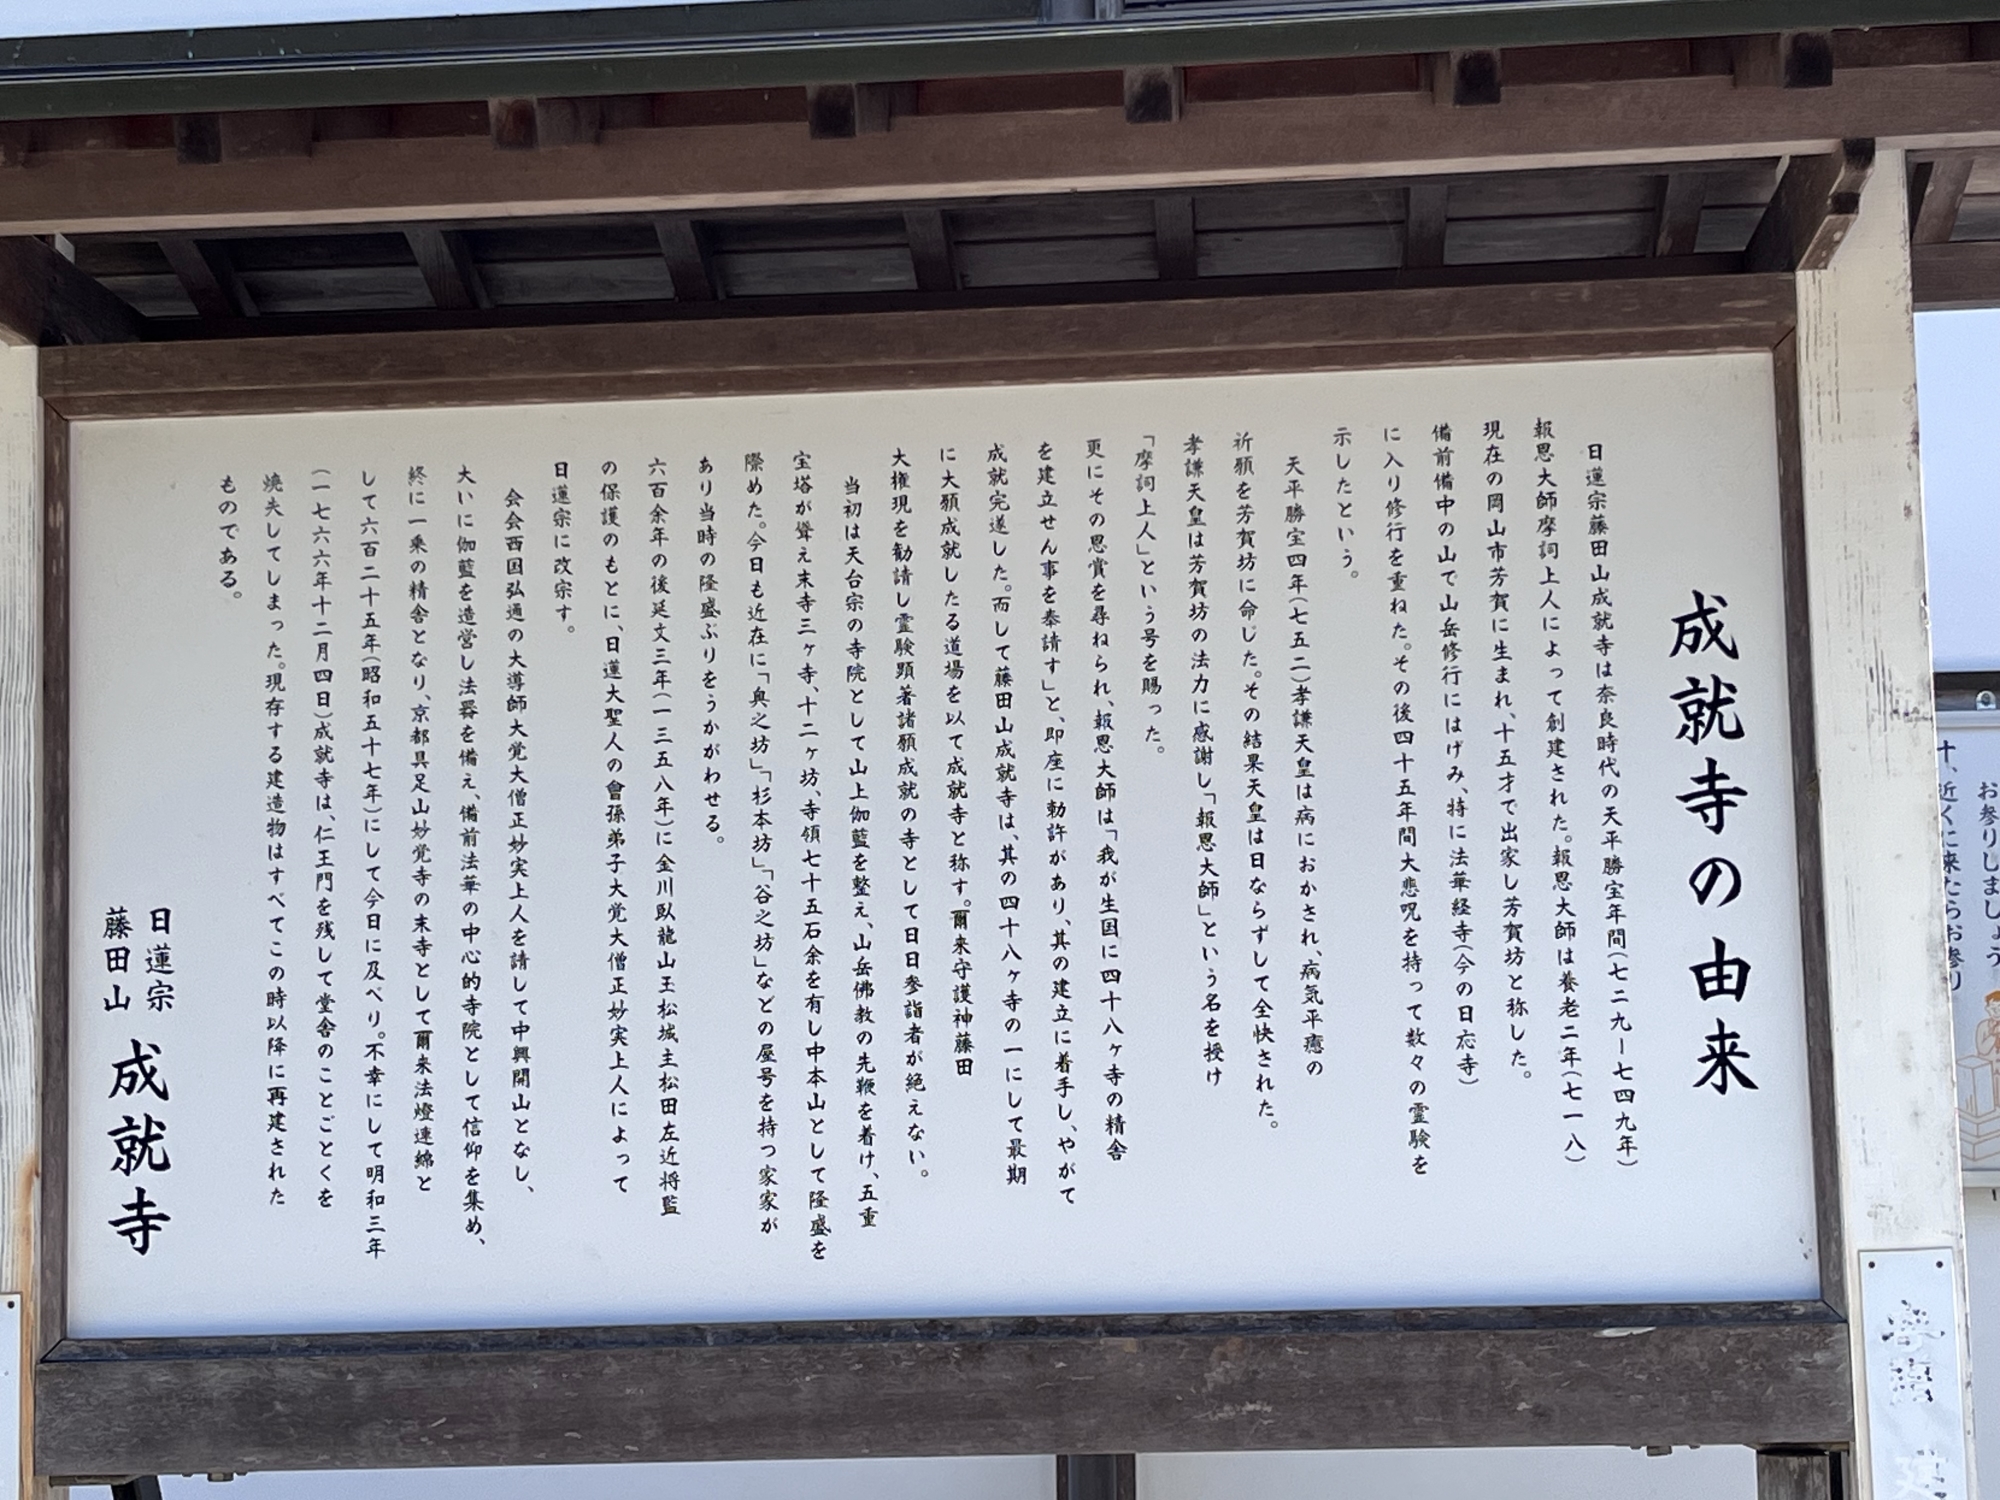 成就寺の由来
日蓮宗藤田山成就寺は奈良時代の天平勝宝年間(七二九ー七四九年)
報恩大師摩訶上人によって創建された。報恩大師は養老二年(七一八)
現在の岡山市芳賀に生まれ、十五才で出家し芳賀坊と称した。
備前備中の山で山岳修行にはげみ、特に法華経寺(今の日応寺)
に入り修行を重ねた。その後四十五年間大悲呪を持って数々の霊験を
示したという。
天平勝宝四年(七五二)孝謙天皇は病におかされ、病気平癒の
祈願を芳賀坊に命じた。その結果天皇は日ならずして全快された。
孝謙天皇は芳賀坊の法力に感謝し「報恩大師」という名を授け
「摩訶上人」という号を賜った。
更にその恩賞を尋ねられ、報恩大師は「我が生国に四十八ヶ寺の精舎
を建立せん事を奉請す」と、即座に勅許があり、其の建立に着手し、やがて
成就完遂した。而して藤田山成就寺は、其の四十八ヶ寺の一にして最期
に大願成就したる道場を以て成就寺と称す。爾来守護神藤田
大権現を勧請し霊験顕著諸願成就の寺として日日参詣者が絶えない。
当初は天台宗の寺院として山上伽藍を整え、山岳佛教の先鞭を着け、五重
宝塔が聳え末寺三ヶ寺、十二ヶ坊、寺領七十五石余を有し中本山として隆盛を
際めた。今日も近在に「奥之坊」「杉本坊」「谷之坊」などの屋号を持つ家家が
あり当時の隆盛ぶりをうかがわせる。
六百余年の後延文三年(一三五八年)に金川臥龍山玉松城主松田左近将監
の保護のもとに、日蓮大聖人の曾孫弟子大覚大僧正妙実上人によって
日蓮宗に改宗す。
会会西国弘通の大導師大覚大僧正妙実上人を請して中興開山となし、
大いに伽藍を造営し法器を備え、備前法華の中心的寺院として信仰を集め、
終に一乗の精舎となり、京都具足山妙覚寺の末寺として爾来法燈連綿と
して六百二十五年(昭和五十七年)にして今日に及べり。不幸にして明和三年
(一七六六年十二月四日)成就寺は、仁王門を残して堂舎のことごとくを
焼失してしまった。現存する建造物はすべてこの時以降に再建された
ものである。
日蓮宗
藤田山 成就寺
お参りしましょう
十、近くに来たらお参り